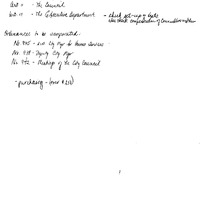 Art II - The Council
Art III - The Executive Department - check set-up of
also check compensation of
Ordinances to be incorporated.
No. 925 - Asst City Mgr for Human Services
No. 938 - Deputy City Mgr
No. 942 - Meetings of the City Council
- purchasing -